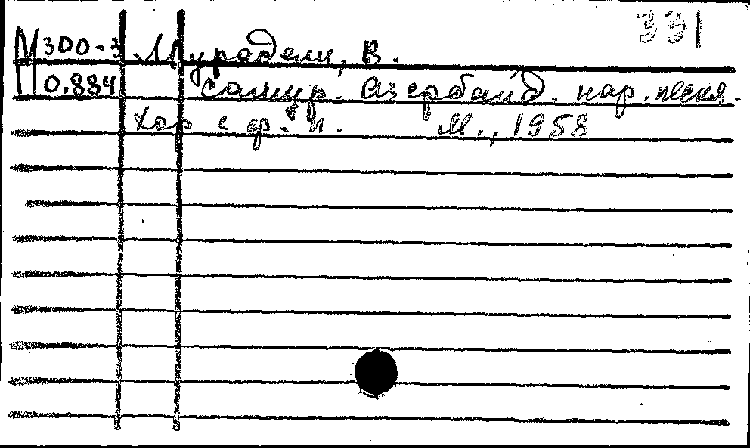 331
М 300-3 Мурадели, В.
0.884 Самур. Азербайд. нар. песня.
Хор с ф.-п. М., 1958